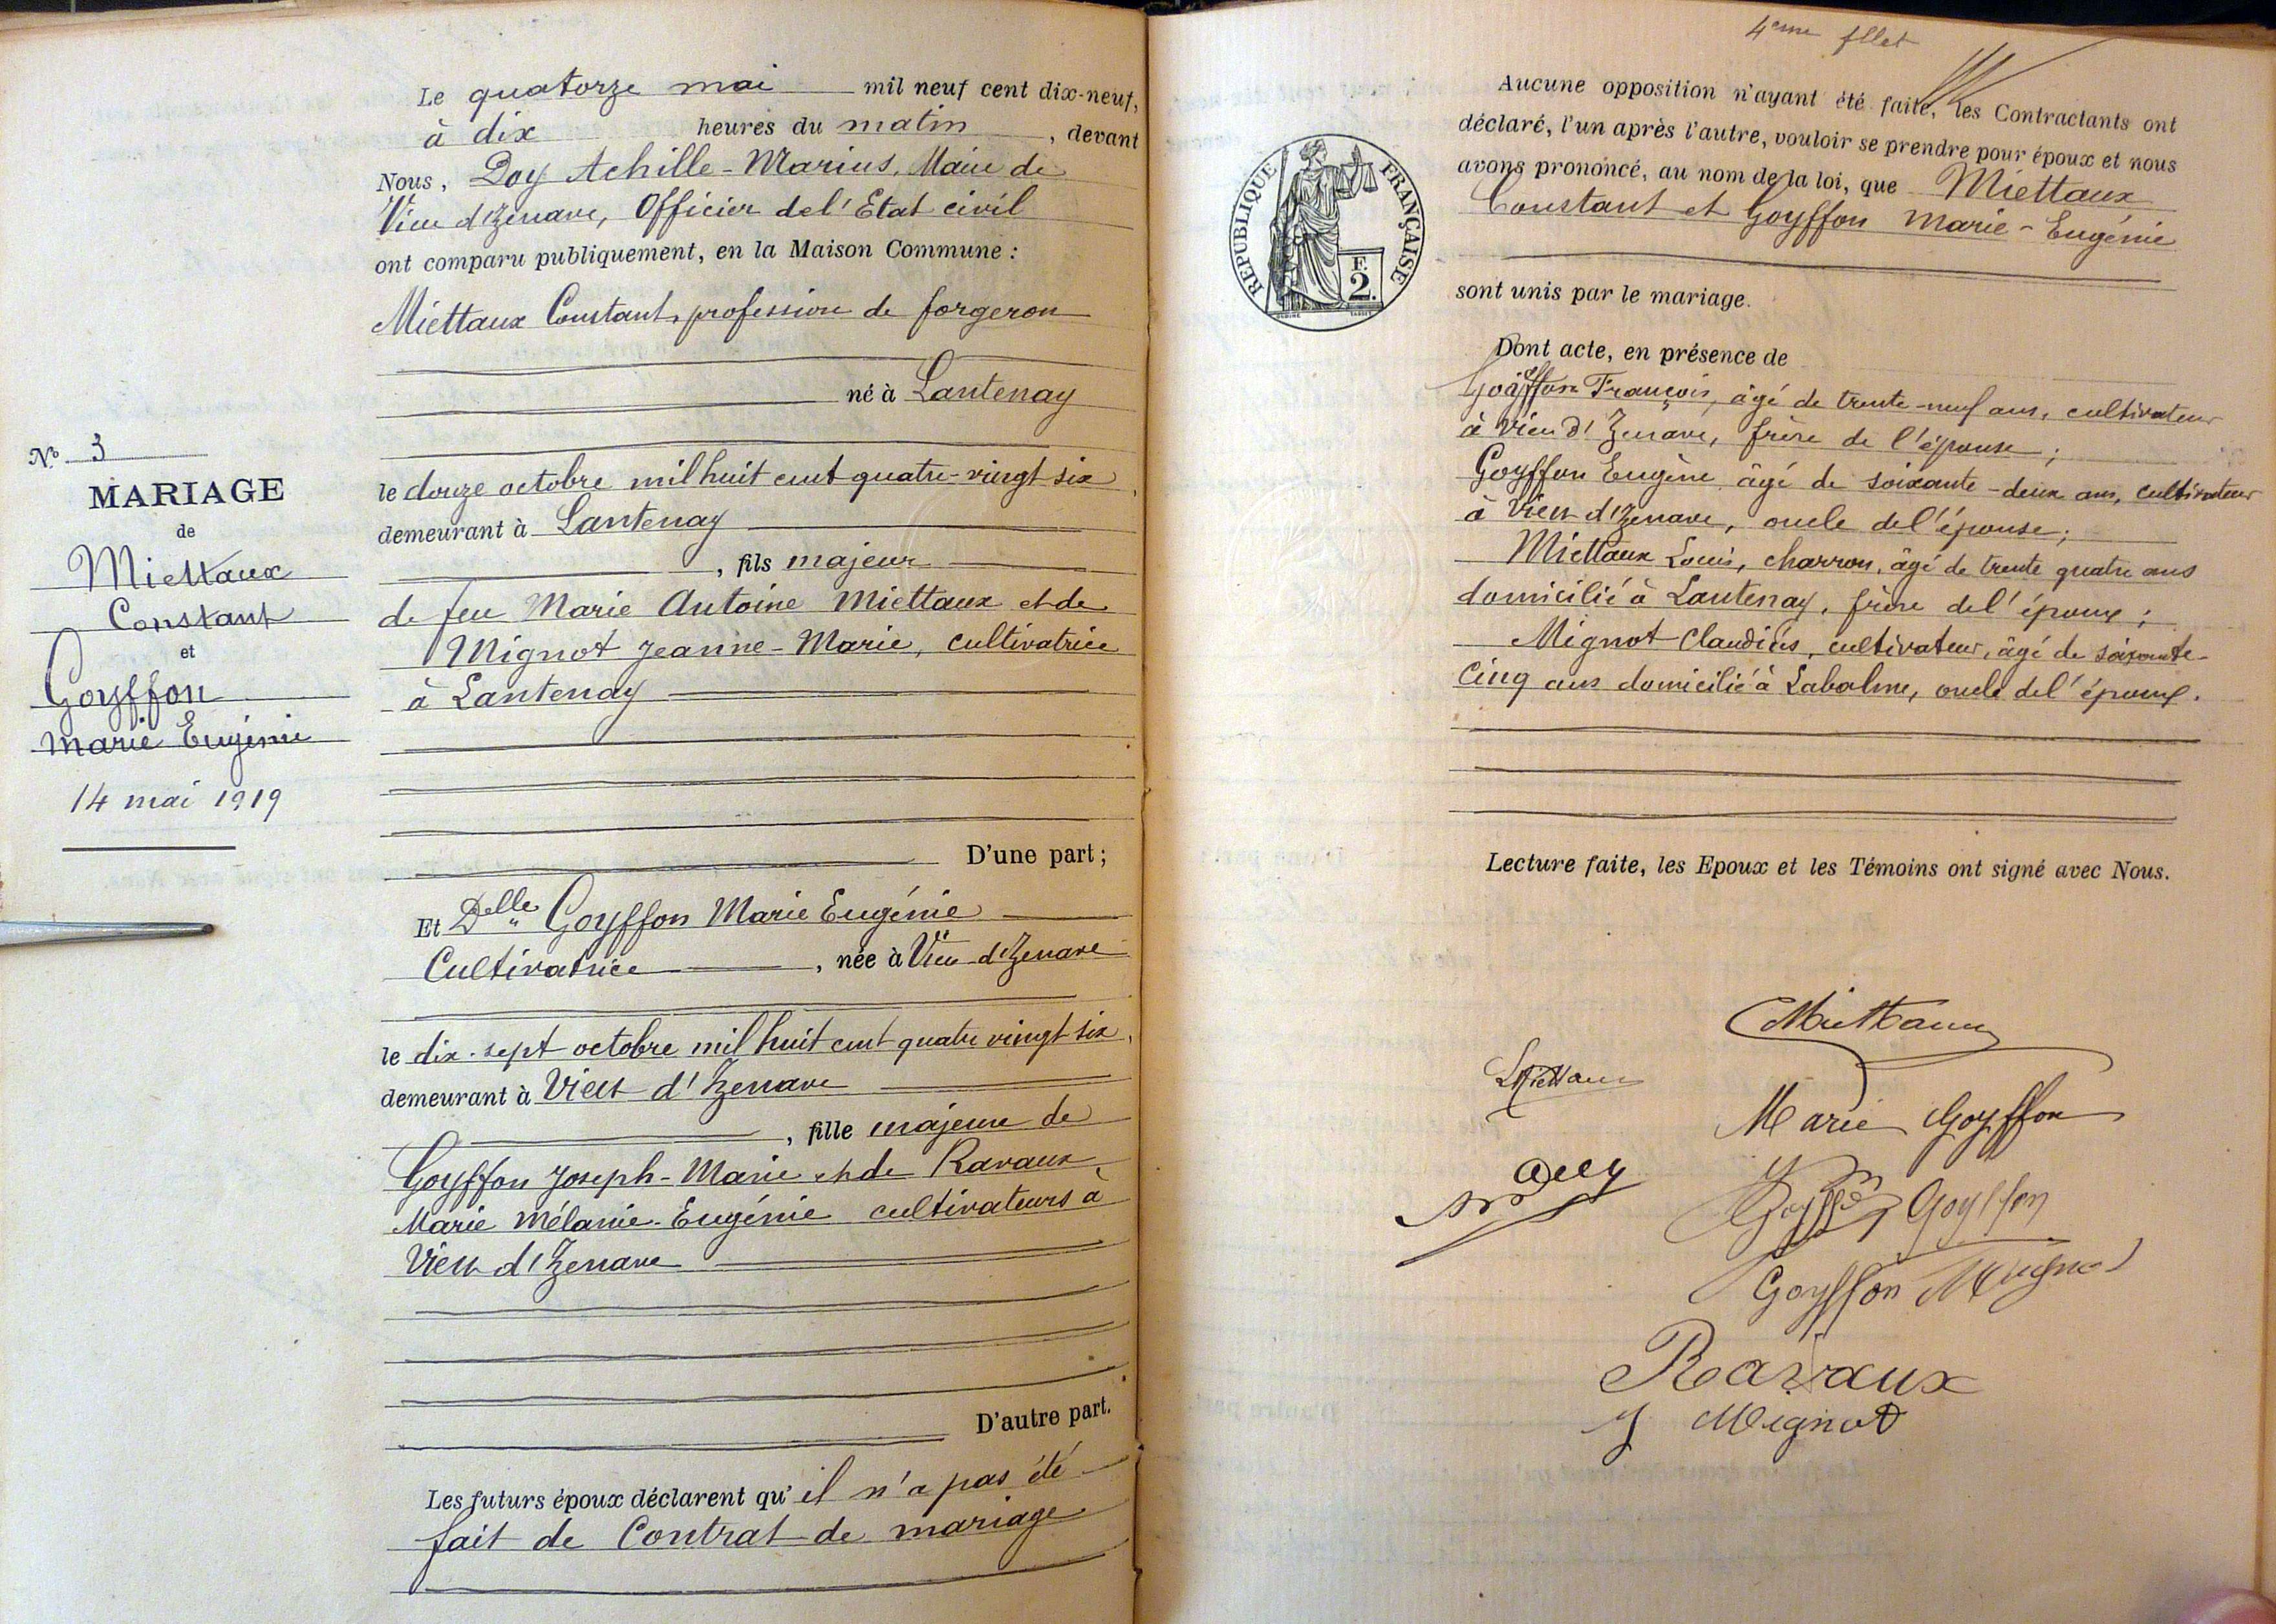 Le quatorze mai mil neuf cent dix-neuf,
à dix heures du matin, devant
Nous, Doy Achille-Marius, Maire de
Vieu d'Izenave, Officier de l'Etat civil
ont comparu publiquement, en la Maison Commune :
Miettaux Constant, profession de forgeron
né à Lantenay
le douze octobre mil huit cent quatre-vingt six,
demeurant à Lantenay
, fils majeur
de feu Marie Antoine Miettaux et de
Mignot Jeanne-Marie, cultivatrice
à Lantenay
D'une part ;
Et Delle Goyffon Marie Eugénie
Cultivatrice, née à Vieu d'Izenave
le dix-sept octobre mil huit cent quatre vingt six,
demeurant à Vieu d'Izenave
, fille majeure de
Goyffon Joseph-Marie et de Ravaux,
Marie Mélanie-Eugénie cultivateurs à
Vieu d'Izenave
D'autre part.
Les futurs époux déclarent qu'il n'a pas été
fait de Contrat de mariage
N° 3
MARIAGE
de
Miettaux
Constant
et
Goyffon
Marie Eugénie
14 mai 1919
4eme fllet
Aucune opposition n'ayant été faite, les Contractants ont
déclaré, l'un après l'autre, vouloir se prendre pour époux et nous
avons prononcé, au nom de la loi, que Miettaux
Constant et Goyffon Marie-Eugénie
sont unis par le mariage.
REPUBLIQUE FRANÇAISE
F.
2.
Dont acte, en présence de
Goyffon François, âgé de trente-neuf ans, cultivateur
à Vieu d'Izenave, frère de l'épouse ;
Goyffon Eugène âgé de soixante-deux ans, cultivateur
à Vieu d'Izenave, oncle de l'épouse ;
Miettaux Louis, charron, âgé de trente quatre ans
domicilié à Lantenay, frère de l'époux ;
Mignot Claudius, cultivateur, âgé de soixante-
cinq ans domicilié à Labalme, oncle de l'époux.
Lecture faite, les Epoux et les Témoins ont signé avec Nous.
CMiettaux
LMiettaux
Marie Goyffon
Goyffon Goyffon
Goyffon Mignot
Ravaux
J Mignot